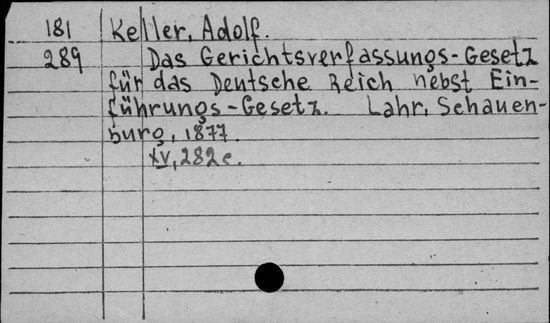 181 Keller, Adolf.
289 Das Gerichtsverfassungs-Gesetz
für das Deutsche Reich nebst Ein-
führungs-Gesetz. Lahr, Schauen-
burg, 1877.
XV, 282 c.